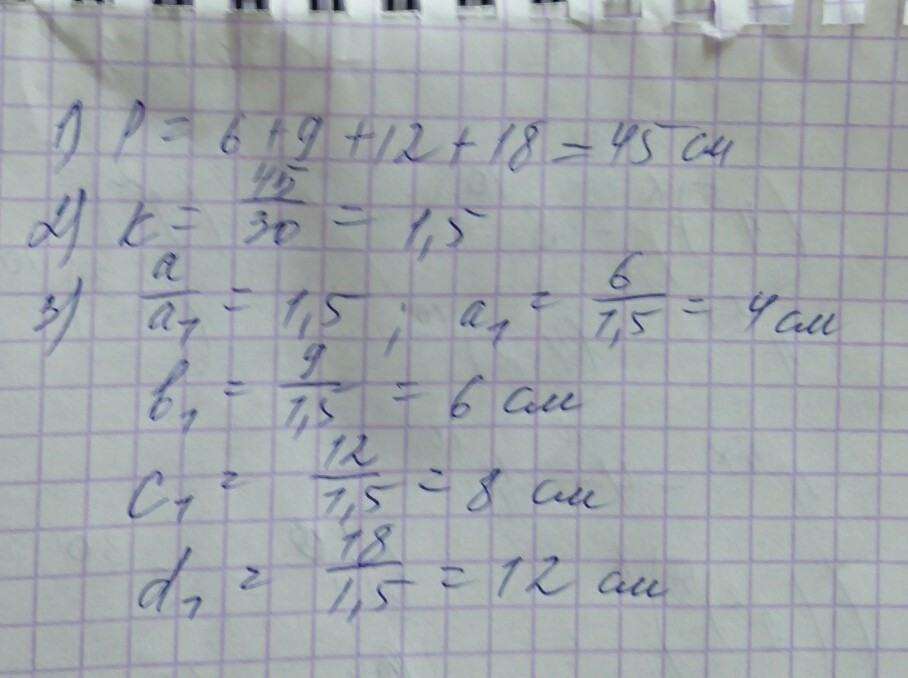 1) P = 6 + 9 + 12 + 18 = 45 см
2) k = 45/30 = 1,5
3) a/a₁ = 1,5 ; a₁ = 6/1,5 = 4 см
b₁ = 9/1,5 = 6 см
c₁ = 12/1,5 = 8 см
d₁ = 18/1,5 = 12 см